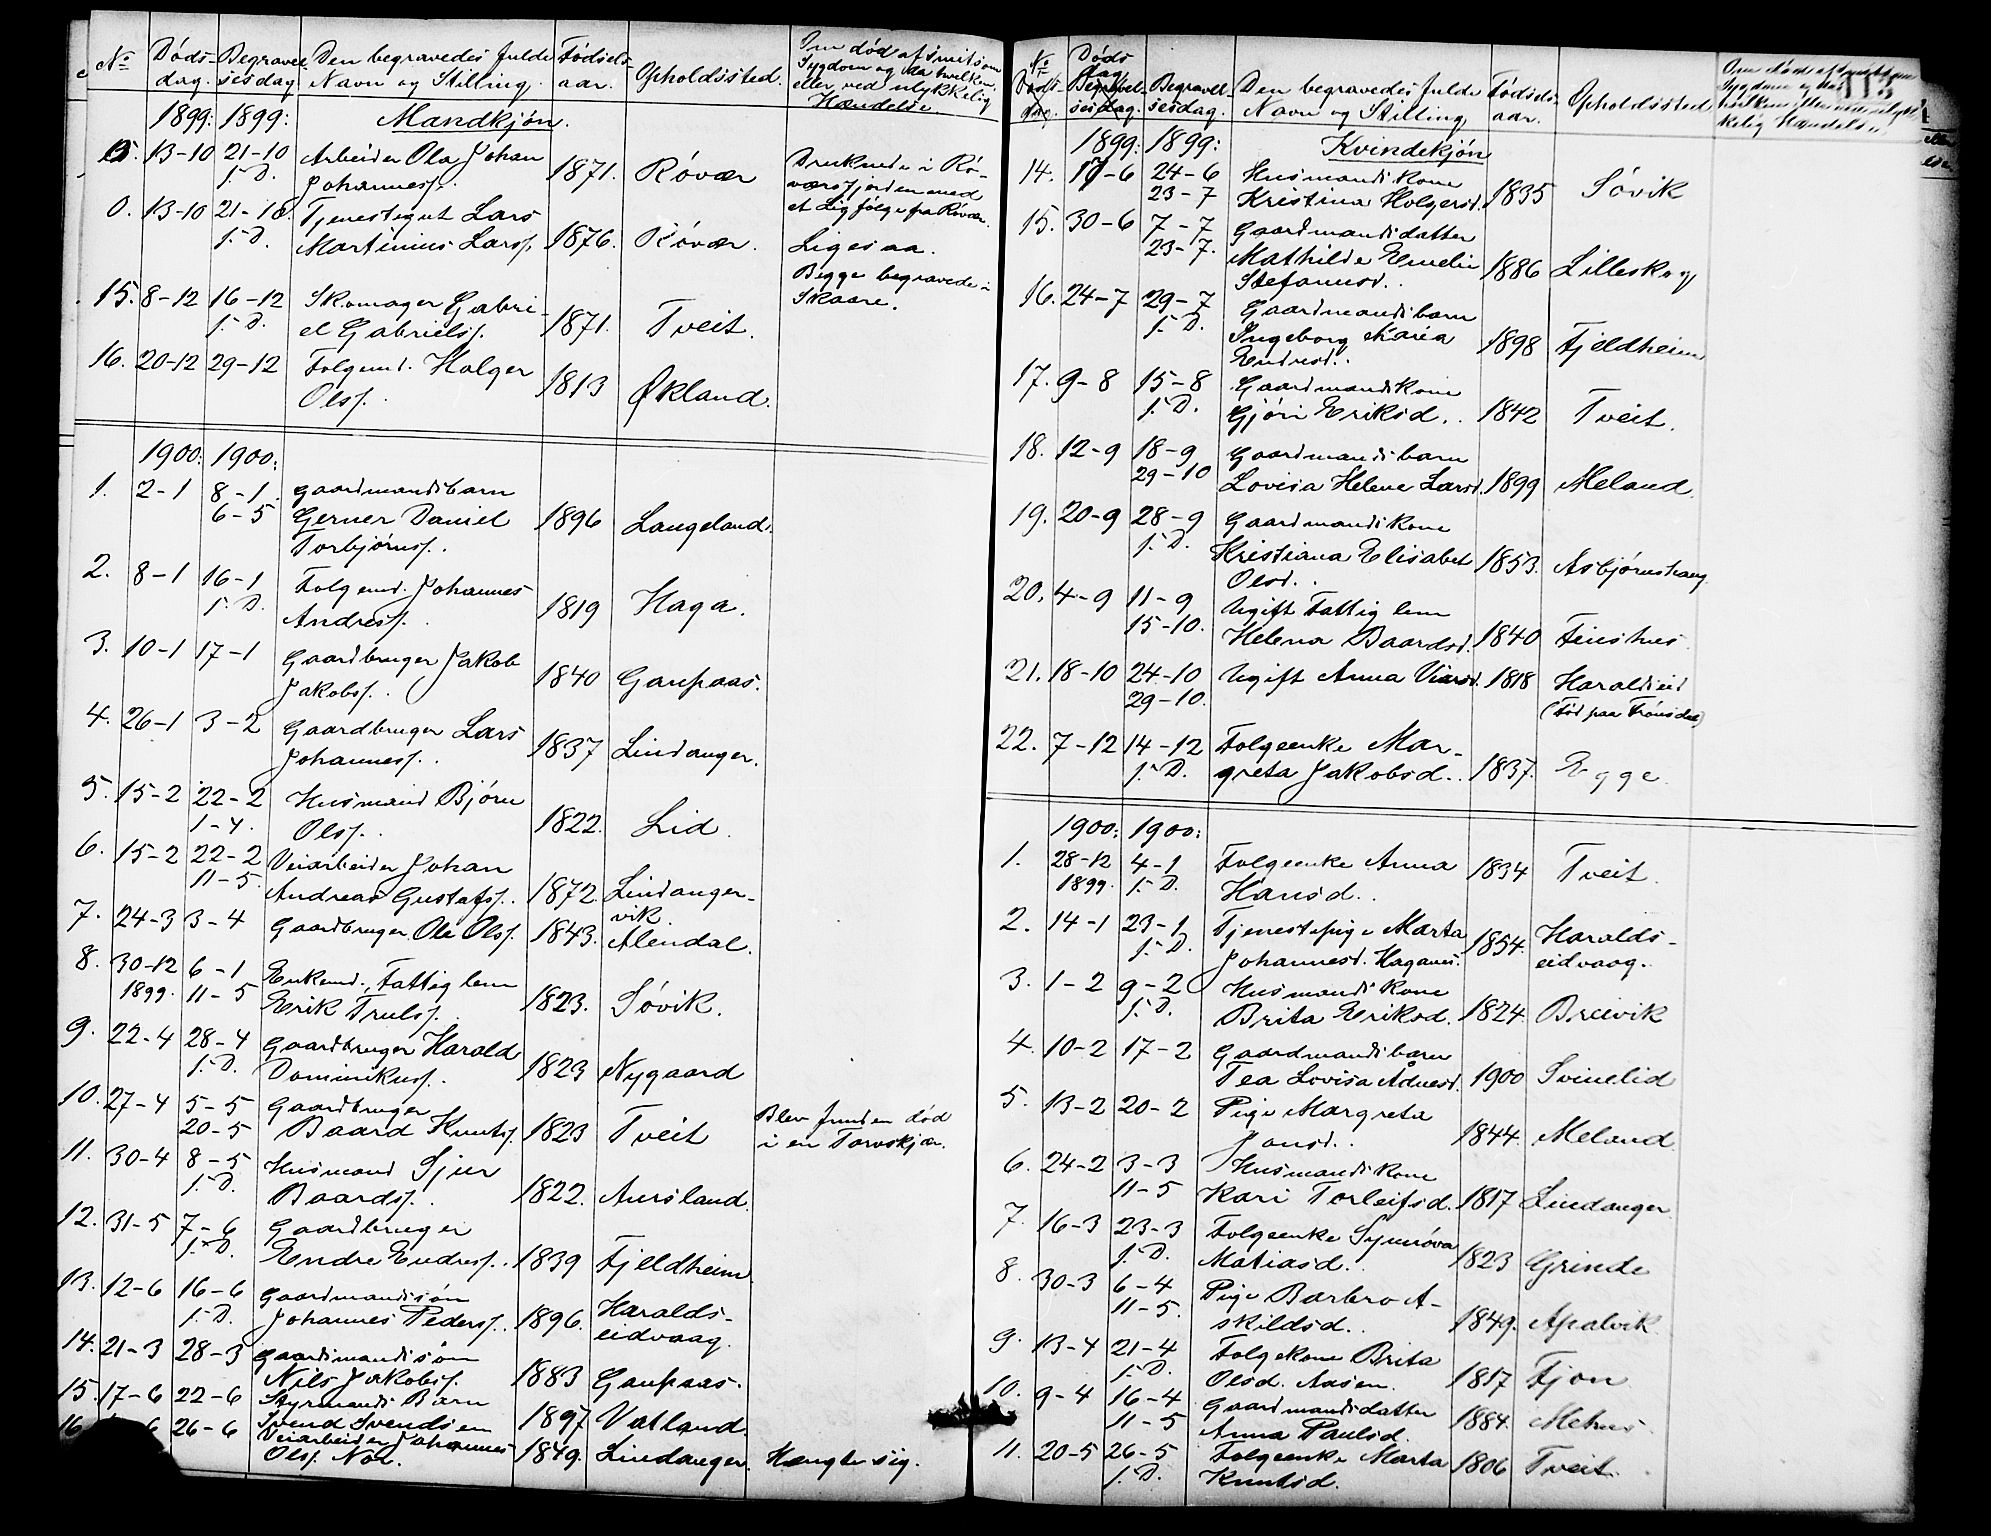 No Døds- Begravel- Den begravedes fulde Fødsels- Opholdssted. Om død af smitsom
dag. sesdag. Navn og Stilling. aar. Sygdom og da hvilken
eller ved ulykkelig
Hændelse.
1899: 1899: Mandkjøn.
13-10 21-10 Arbeider Ola Johan 1871. Røvær Druknede i Rø-
s. D. Johannesf. værsfjorden med
0. 13-10 21-10 Tjenestegut Lars et Ligfølge fra Røvær.
s. D. Martinius Larsf. 1876. Røvær. Ligesaa.
Begge begravede i
Skaare.
15. 8-12 16-12 Skomager Gabri-
s. D. el Gabrielsf. 1871. Tveit.
16. 20-12 29-12 Folgemd. Holger
Olsf. 1813 Økland.
1900: 1900:
1. 2-1 8-1 Gaardmandsbarn
6-5 Gerner Daniel 1896 Langeland.
Torbjørnsf.
2. 8-1 16-1 Folgemd. Johannes
s. D. Andresf. 1819 Haga.
3. 10-1 17-1 Gaardbruger Jakob
Jakobsf. 1840 Gaupaas.
4. 26-1 3-2 Gaardbruger Lars
Johannesf. 1837 Lindanger.
5. 15-2 22-2 Husmand Bjørn
1-4. Olsf. 1822. Lid.
6. 15-2 22-2 Veiarbeider Johan
11-5. Andreas Gustafsf. 1872. Lindanger-
vik.
7. 24-3 3-4 Gaardbruger Ole Olsf. 1843. Alendal.
8. 30-12 6-1 Enkemd., Fattiglem
1899. 11-5 Erik Trulsf. 1823. Søvik.
9. 22-4 28-4 Gaardbruger Harald
s. D. Dominikusf. 1823 Nygaard
10. 27-4 5-5 Gaardbruger Blev funden død
20-5 Baard Knutsf. 1823 Tveit i en Torvskjær.
11. 30-4 8-5 Husmand Sjur
s. D. Baardsf. 1822. Aursland.
12. 31-5 7-6 Gaardbruger
s. D. Endre Endresf. 1839 Fjeldheim
13. 12-6 16-6 Gaardmandssøn
s. D. Johannes Pedersf. 1896. Haralds-
eidvaag.
14. 21-3 28-3 Gaardmandssøn
Nils Jakobsf. 1883 Gaupaas.
15. 17-6 22-6 Styrmands Barn
Svend Svendsen 1897 Vatland.
16 26-6 Veiarbeider Johannes
Olsf. Nor. 1849. Lindanger. Hængte sig.
No Døds Begravel- Den begravedes fulde Fødsels- Opholdssted Om død af smitsom
dag sesdag. Navn og Stilling, aar. Sygdom og da
hvilken eller ved ulyk-
kelig Hændelse.
113
1899: 1899: Kvindekjøn
14. 17-6 24-6 Husmandskone
23-7 Kristina Holgersd. 1835 Søvik
15. 30-6 7-7 Gaardmandsdatter
23-7. Mathilde Emelie 1886 Lilleskog
Stefansd.
16. 24-7 29-7 Gaardmandsbarn
s. D. Ingeborg Maria 1898 Fjeldheim
Endresd.
17. 9-8 15-8 Gaardmandskone
s. D. Gjøri Eriksd. 1842 Tveit.
18. 12-9 18-9 Gaardmandsbarn
29-10 Lovisa Helene Larsd. 1899 Meland.
19. 20-9 28-9 Gaardmandskone
s. D. Kristiana Elisabet 1853. Asbjørnshaug
Olsd.
20. 4-9 11-9 Ugift Fattiglem
15-10. Helena Baardsd. 1840 Finshus.
21. 18-10 24-10 Ugift Anna 1818 Haraldseid
29-10. (Fød paa Frønsdal)
22. 7-12 14-12 Folgeenke Mar-
s. D. greta Jakobsd. 1837. Egge.
1900: 1900:
1. 28-12 4-1 Folgeenke Anna 1834 Tveit.
1899. s. D. Hansd.
2. 14-1 23-1 Tjenestepige Marta 1854. Haralds-
s. D. Johannesd. Haganes. eidvaag.
3. 1-2 9-2 Husmandskone
s. D. Brita Eriksd. 1824. Breivik
4. 10-2 17-2 Gaardmandsbarn
Tea Lovisa Adnesd. 1900 Svinelid
5. 13-2 20-2 Pige Margreta
Jonsd. 1844. Meland.
6. 24-2 3-3 Husmandskone
11-5 Kari Torleifsd. 1817 Lindanger
7. 16-3 23-3 Folgeenke Synnøva
s. D. Matiasd. 1823 Grinde
8. 30-3 6-4 Pige Barbro A-
11-5. skildsd. 1849. Apalvik
9. 13-4 21-4 Folgekone Brita
s. D. Olsd. Aasen. 1817 Fjon
10. 9-4 16-4 Gaardmandsdatter
11-5 Anna Paulsd. 1884. Mehus.
11. 20-5 26-5 Folgeenke Marta 1806 Tveit.
s. D. Knutsd.